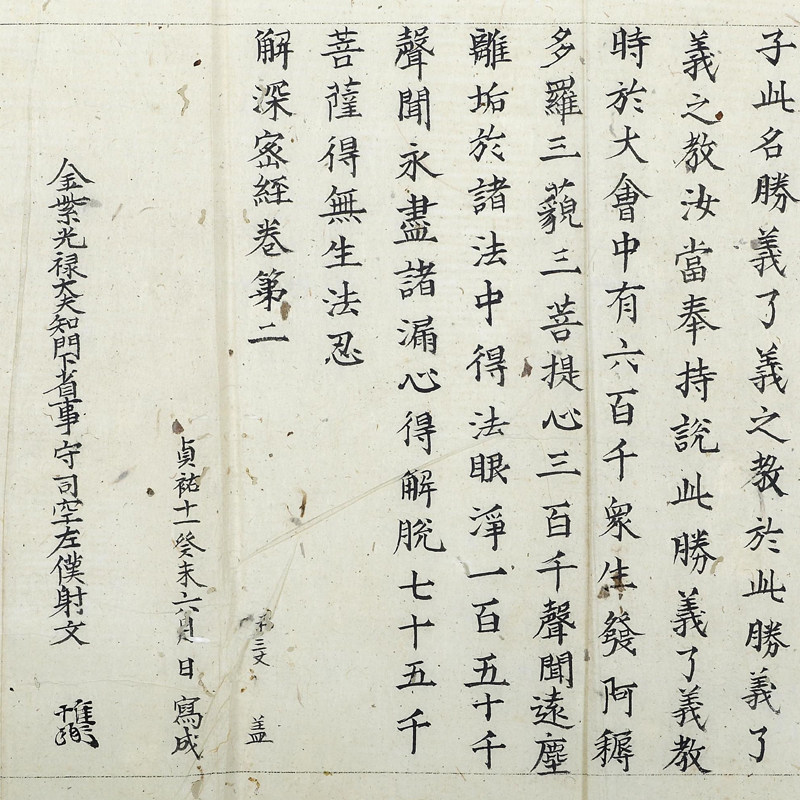 子此名勝義了義之教於此勝義了
義之教汝當奉持說此勝義了義教
時於大會中有六百千衆生發阿耨
多羅三藐三菩提心三百千聲聞遠塵
離垢於諸法中得法眼淨一百五十千
聲聞永盡諸漏心得解脫七十五千
菩薩得無生法忍
解深密經卷第二
三丈 盖
貞祐十一癸未六月日 寫成
金紫光禄大夫知門下省事守司空左僕射文